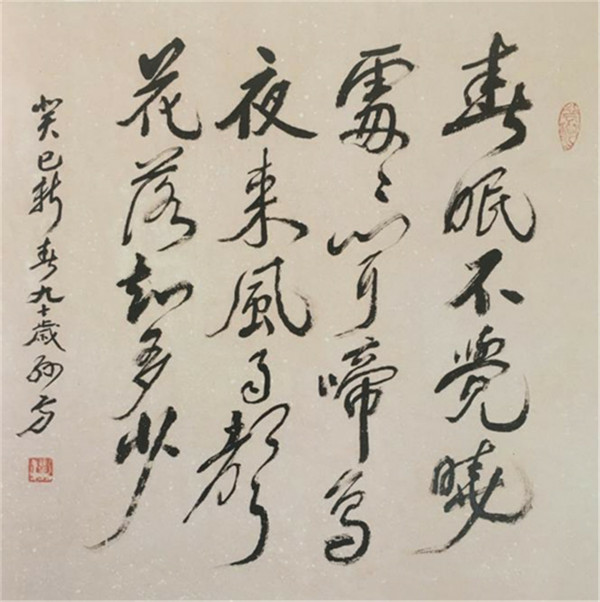 春眠不覺曉
處〻聞啼鳥
夜来風雨聲
花落知多少
癸巳新春九十歲孫方